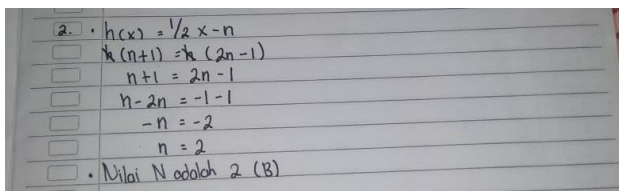 2. • h(x) = 1/2 x - n
h(n+1) = h(2n-1)
n+1 = 2n-1
n-2n = -1-1
-n = -2
n = 2
• Nilai N adalah 2 (B)